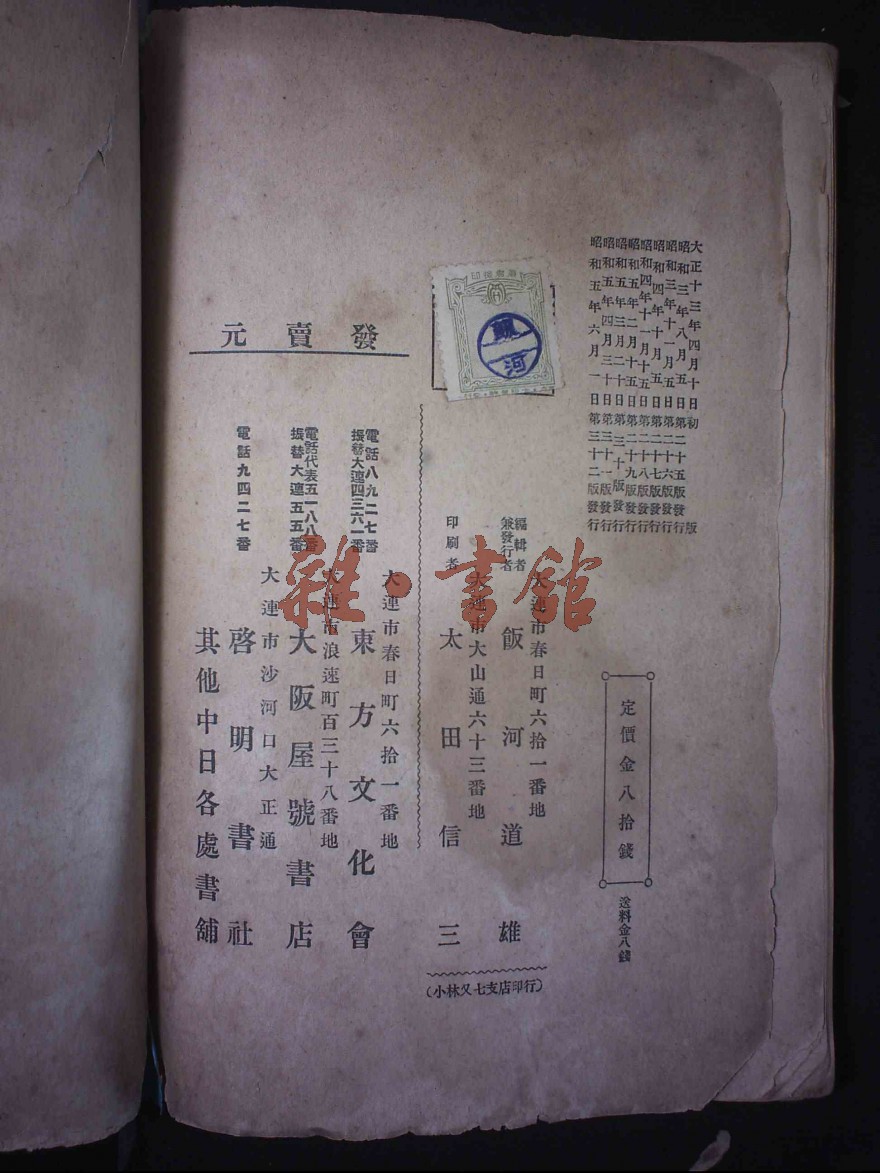 大正十三年四月十日初版
昭和三年八月五日第二十五版發行
昭和三年十一月五日第二十六版發行
昭和四年十月五日第二十七版發行
昭和四年十一月十五日第二十八版發行
昭和五年二月十五日第二十九版發行
昭和五年三月二十日第三十版發行
昭和五年四月三十日第三十一版發行
昭和五年六月一日第三十二版發行
定價金八拾錢
送料金八錢
大連市春日町六拾一番地
編輯者
兼發行者
飯河道雄
大連市大山通六十三番地
印刷者
太田信三
(小林又七支店印行)
飯河
發賣元
大連市春日町六拾一番地
東方文化會
電話八九二七番
振替大連四三六一番
大連市浪速町百三十八番地
大阪屋號書店
電話代表五一八八番
振替大連五五番
大連市沙河口大正通
啓明書社
電話九四二七番
其他中日各處書舖
雜·書館